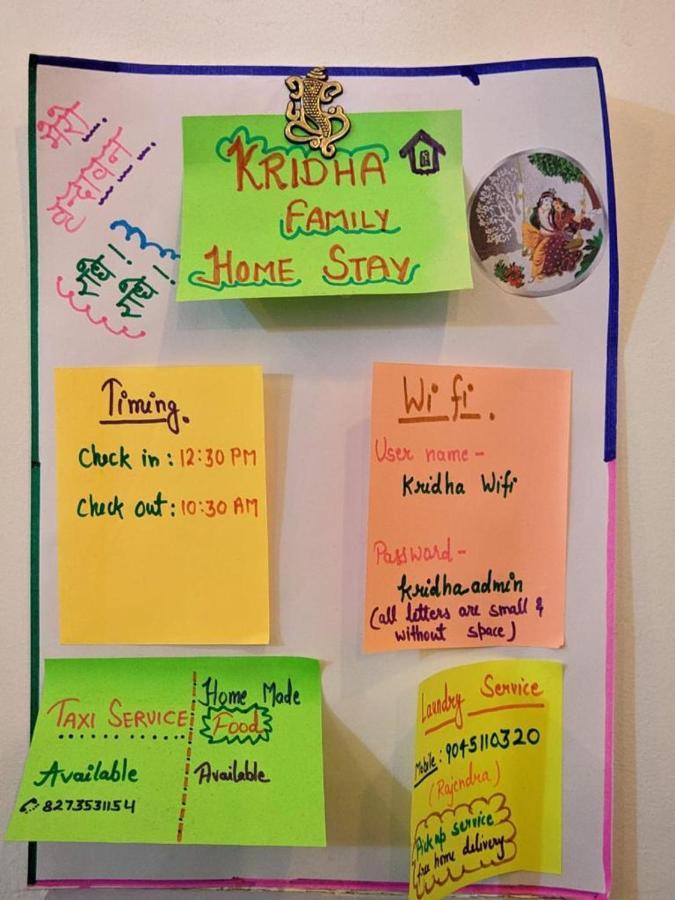 मेरो
वृन्दावन
राधे!
राधे!
KRIDHA
FAMILY
HOME STAY
Timing.
Check in : 12:30 PM
Check out : 10:30 AM
Wifi.
User name -
Kridha Wifi
Password -
kridhaadmin
(all letters are small &
without space)
TAXI SERVICE
Available
8273531154
Home Made
Food
Available
Laundry Service
Mobile : 9045110320
(Rajendra)
Pick up service
free home delivery